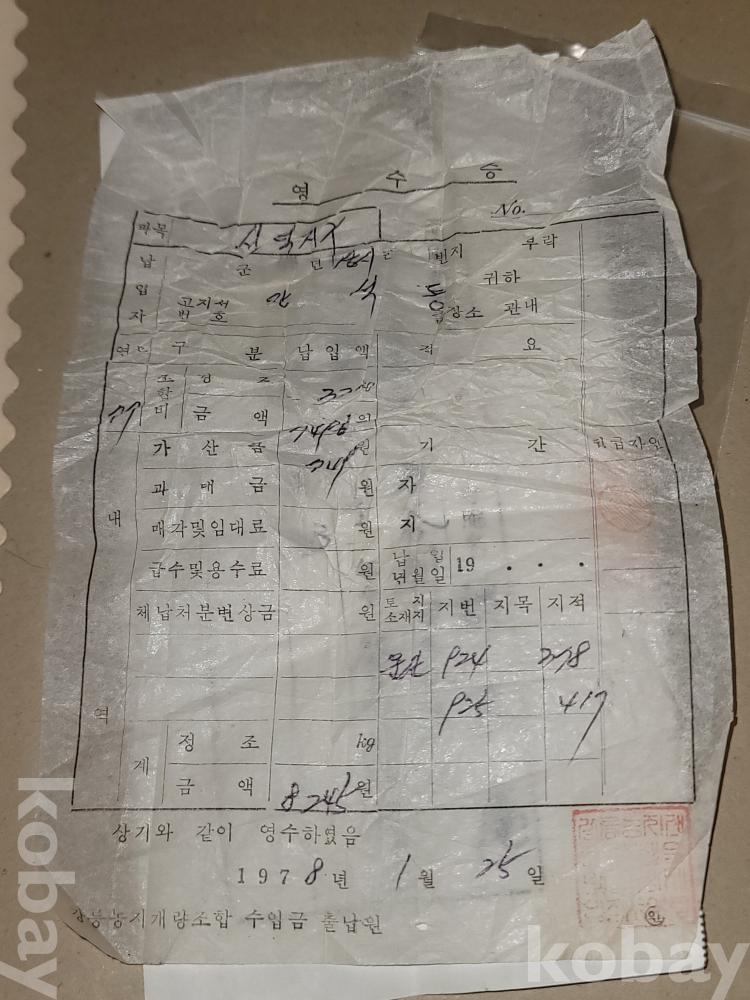 영 수 증
No.
과목
납 군 면 번지 부락
입 귀하
고지서 석 도
자 번호 출장소 관내
연도 구 분 납입액 적 요
조합 정 조 kg
비 금 액 7496 원
가 산 금 749 원 기 간 취급자인
과 태 금 원 자
내
매각및임대료 원 지
급수및용수료 원 납입년월일 19 . . .
체납처분변상금 원 토지소재지 지번 지목 지적
924
925 417
역
정 조 kg
계
금 액 8245 원
상기와 같이 영수하였음
1978년 1월 25일
강릉농지개량조합 수입금 출납원 인
kobay
kobay